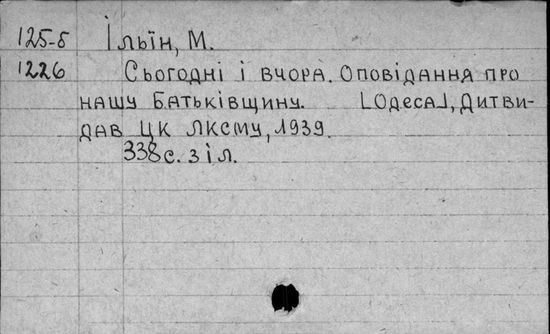 125-б Ільїн, М.
1226 Сьогодні і вчора. Оповідання про
нашу Батьківщину. [Одеса], Дитви-
дав ЦК ЛКСМУ, 1939.
338 с. з іл.